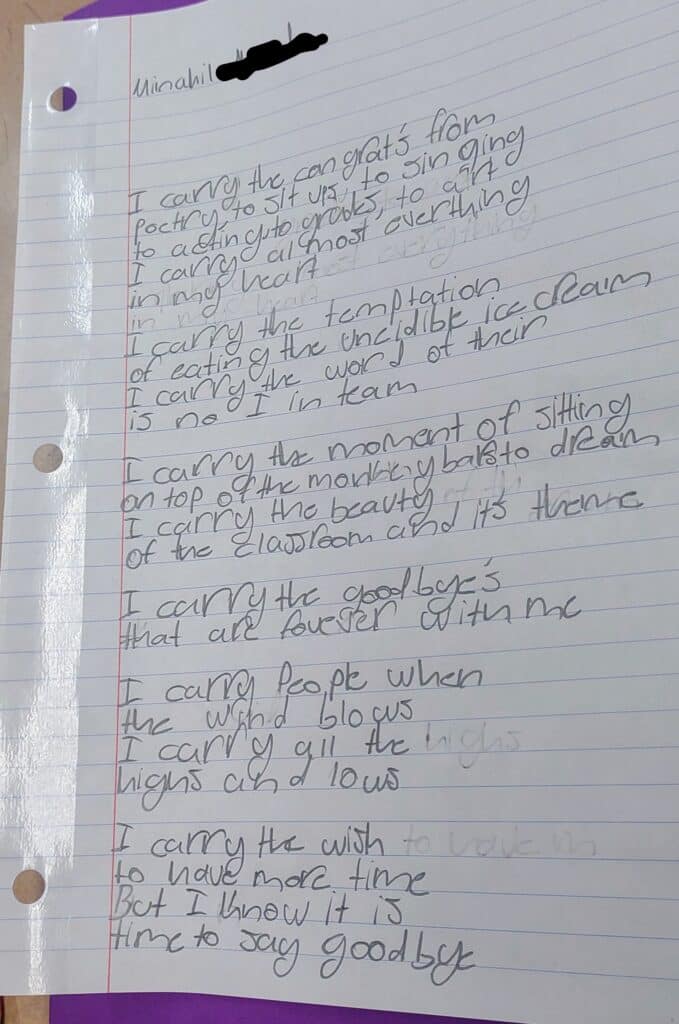 Minahil
I carry the congrat's from
poetry, to sit ups, to singing
to acting, to grades, to art
I carry almost everthing
in my heart
I carry the temptation
of eating the incidible ice cream
I carry the word of their
is no I in team
I carry the moment of sitting
on top of the monkey bars to dream
I carry the beauty
of the classroom and it's theme
I carry the goodbye's
that are forever with me
I carry people when
the wind blows
I carry all the
highs and lows
I carry the wish
to have more time
But I know it is
time to say goodbye